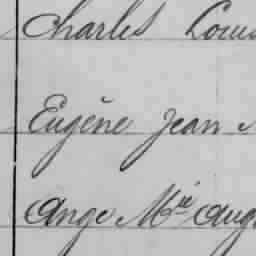 Charles Louis
Eugène Jean
Ange Mie Aug